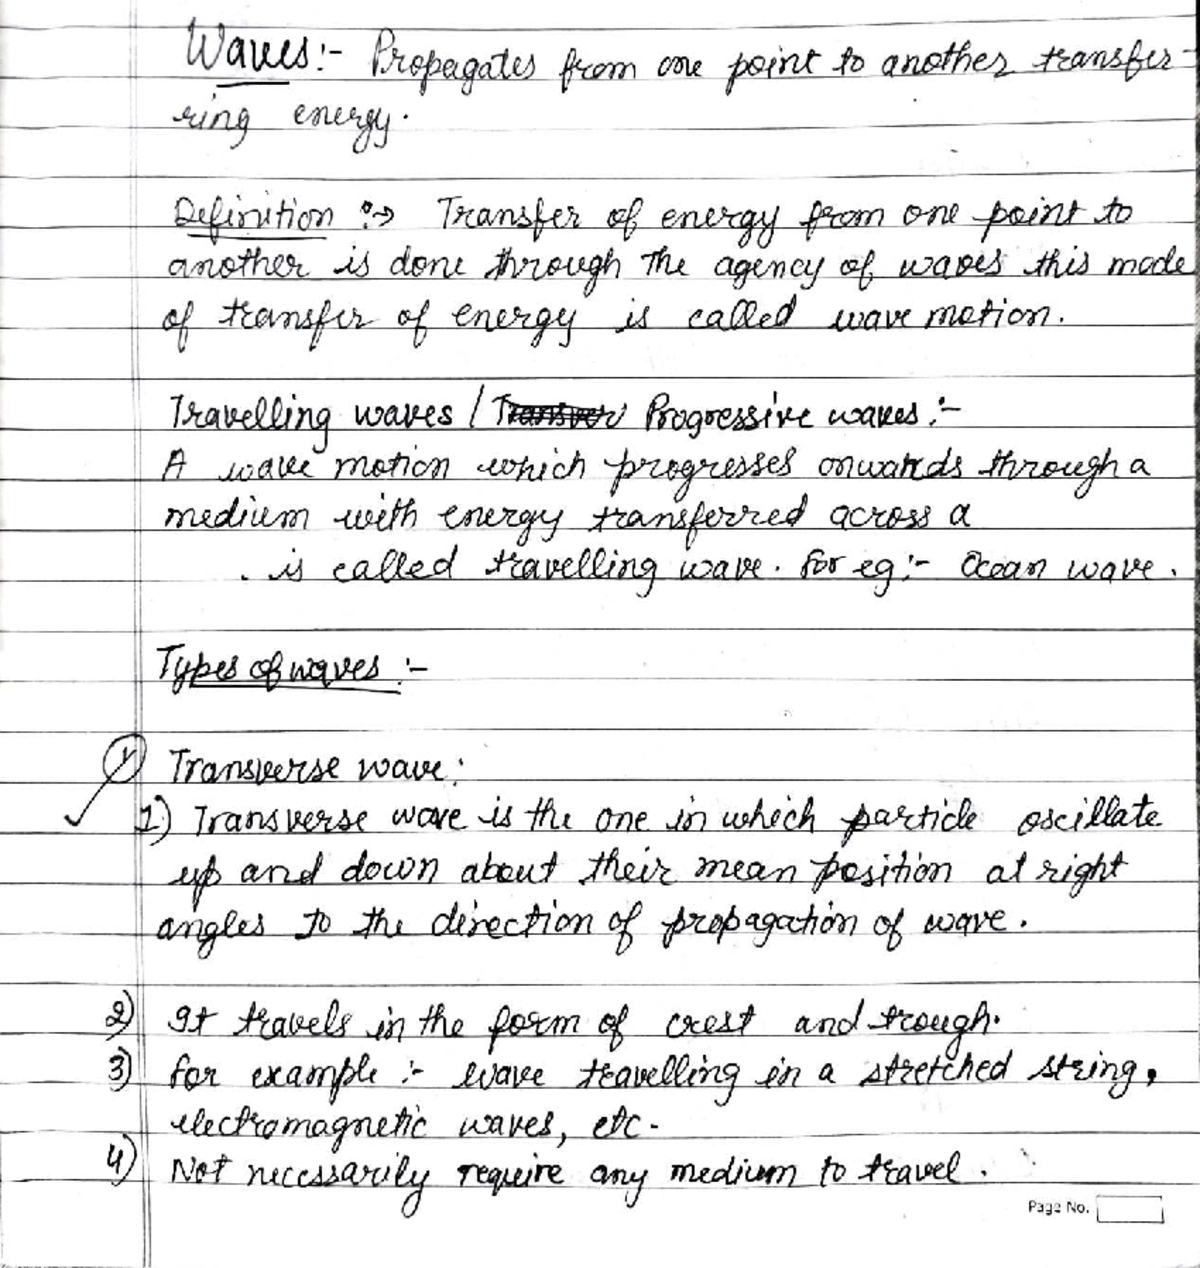 Waves:- Propagates from one point to another transfer-
ring energy.
Definition :→ Transfer of energy from one point to
another is done through the agency of waves this mode
of transfer of energy is called wave motion.
Travelling waves / Progressive waves:-
A wave motion which progresses onwards through a
medium with energy transferred across a
. is called travelling wave. For eg:- Ocean wave.
Types of waves :-
1) Transverse wave:
1) Transverse wave is the one in which particle oscillate
up and down about their mean position at right
angles to the direction of propagation of wave.
2) It travels in the form of crest and trough.
3) for example :- wave travelling in a stretched string,
electromagnetic waves, etc.
4) Not necessarily require any medium to travel.
Page No.